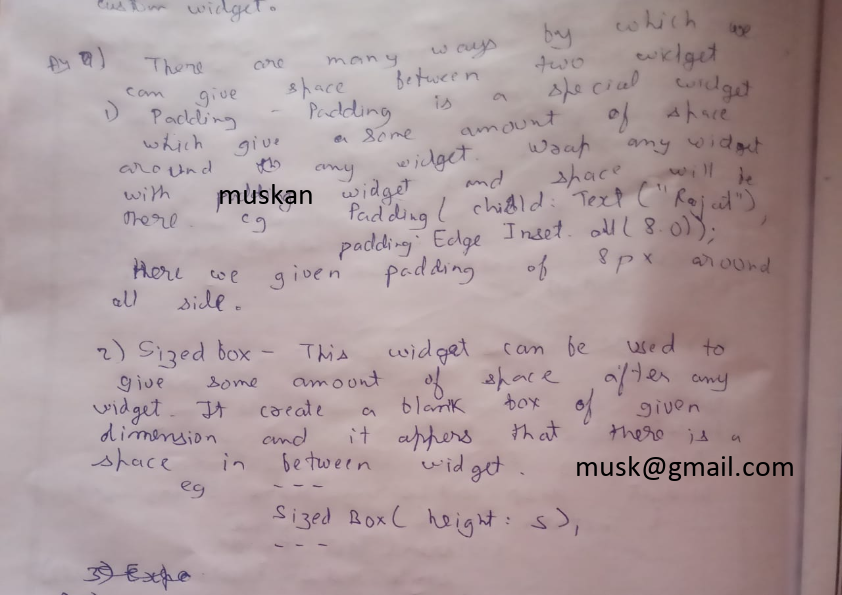 custom widget.
Ay 9) There are many ways by which we
can give space between two widget
1) Padding - Padding is a special widget
which give a some amount of space
around any widget. Wrap any widget
with muskan widget and space will be
there. eg Padding( child: Text ("Rajat"),
padding: Edge Inset. all( 8.0));
Here we given padding of 8px around
all side.
2) Sized box - This widget can be used to
give some amount of space after any
widget. It create a blank box of given
dimension and it appers that there is a
space in between widget. musk@gmail.com
eg - - -
Sized Box( height: 5),
- - -
3) Expa